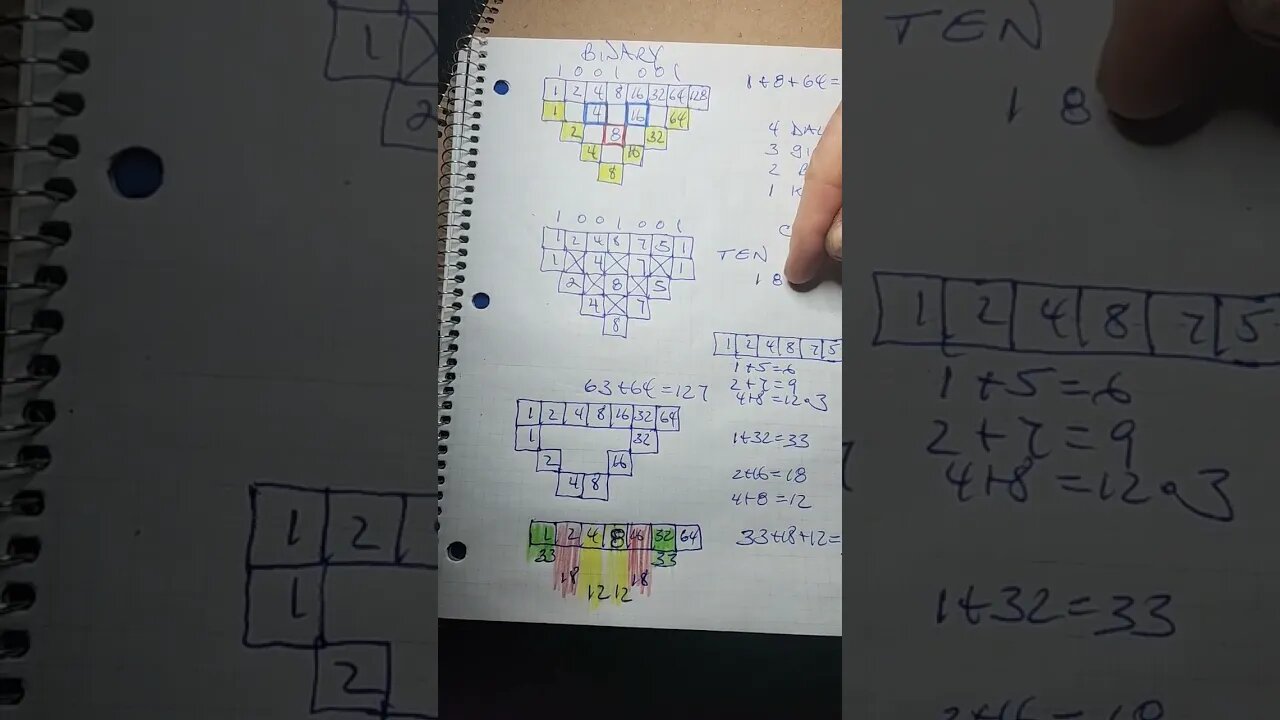 BINARY
1 0 0 1 0 0 1
1 2 4 8 16 32 64 128
1 4 16 64
2 8 32
4 16
8
1+8+64=
4
3
2
1
1 0 0 1 0 0 1
1 2 4 8 7 5 1
1 4 7 1
2 8 5
4 7
8
TEN
1 8
63+64=127
1 2 4 8 16 32 64
1 32
2 16
4 8
1 2 4 8 7 5
1+5=6
2+7=9
4+8=12.3
1+32=33
2+16=18
4+8=12
33+18+12=
1 2 4 8 16 32 64
33 33
18 18
12 12